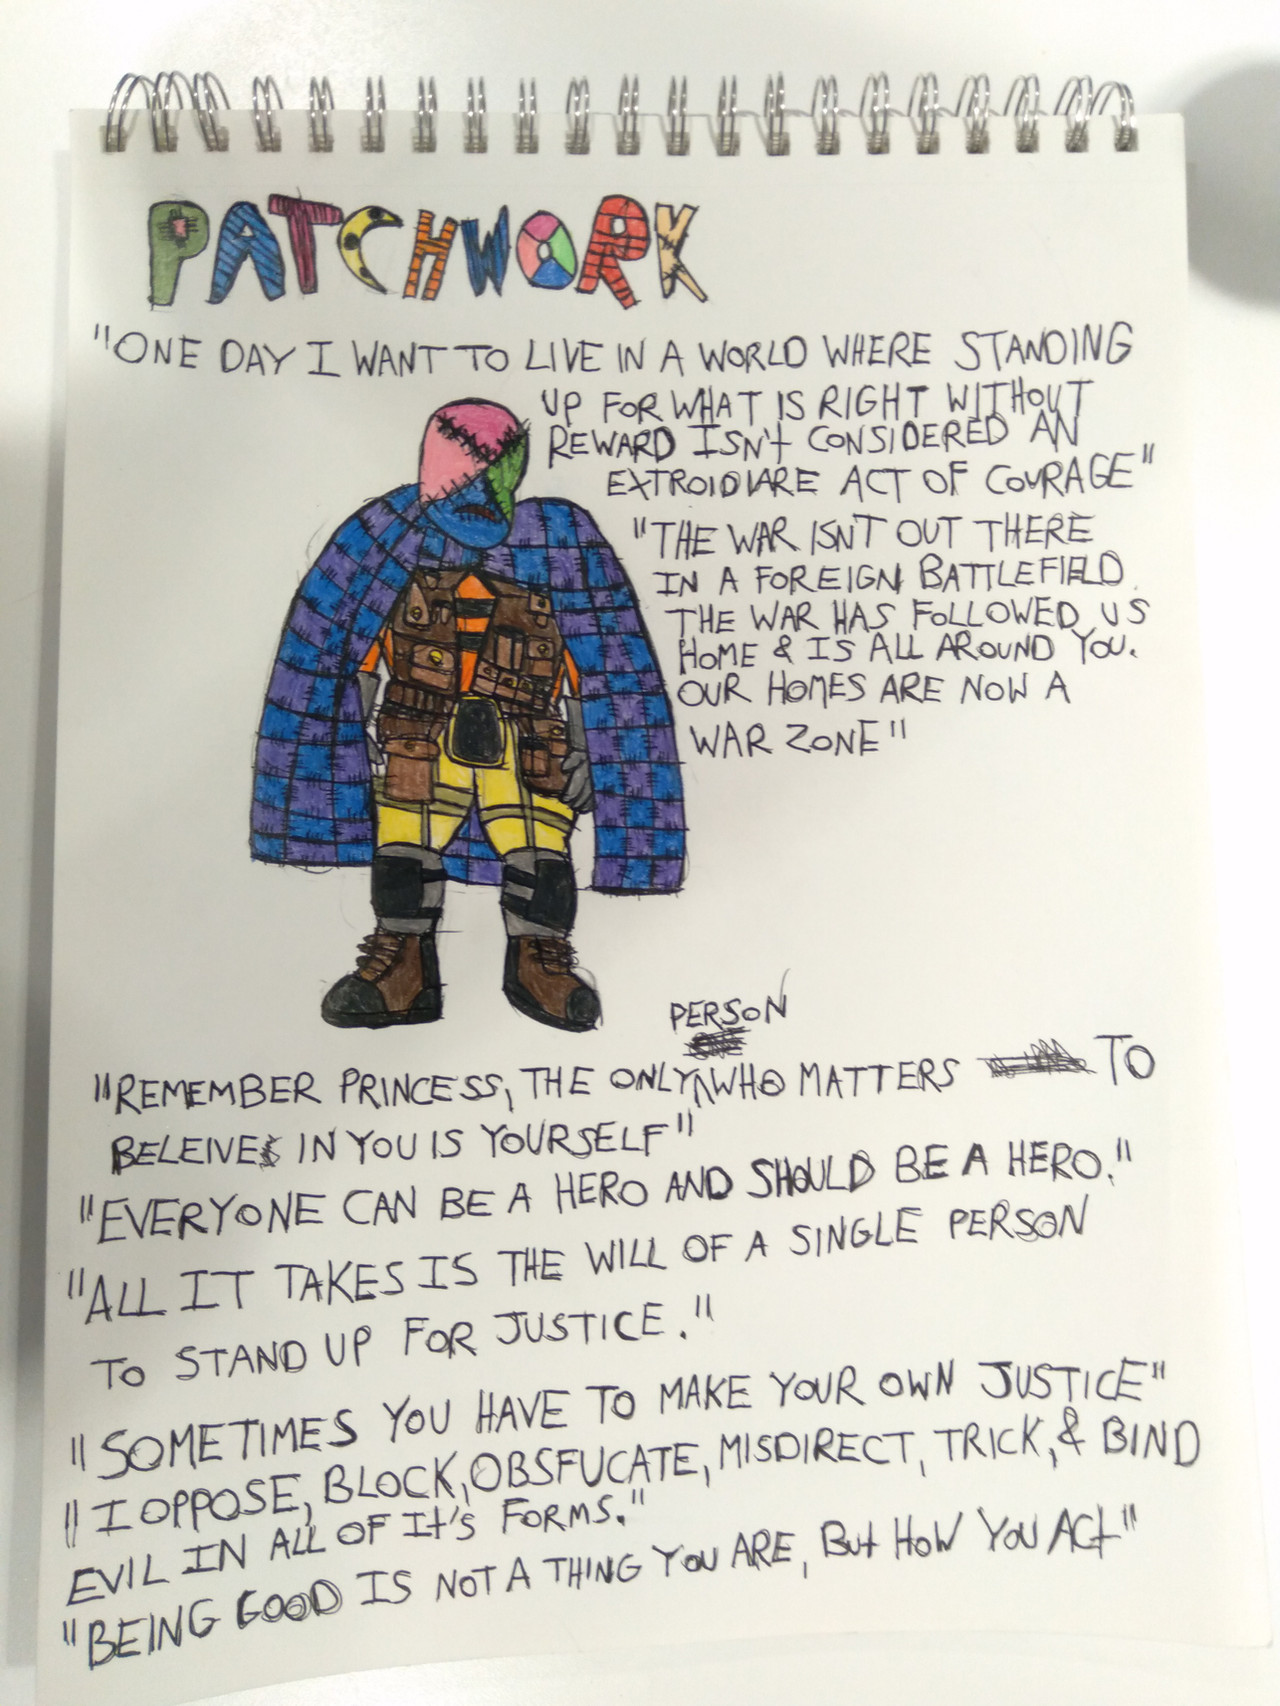 PATCHWORK
"ONE DAY I WANT TO LIVE IN A WORLD WHERE STANDING
UP FOR WHAT IS RIGHT WITHOUT
REWARD ISN't CONSIDERED AN
EXTROIDIARE ACT OF COURAGE"
"THE WAR ISN'T OUT THERE
IN A FOREIGN BATTLEFIELD.
THE WAR HAS FOLLOWED US
HOME & IS ALL AROUND YOU.
OUR HOMES ARE NOW A
WAR ZONE"
PERSON
"REMEMBER PRINCESS, THE ONLY WHO MATTERS TO
BELEIVE IN YOU IS YOURSELF"
"EVERYONE CAN BE A HERO AND SHOULD BE A HERO."
"ALL IT TAKES IS THE WILL OF A SINGLE PERSON
TO STAND UP FOR JUSTICE."
"SOMETIMES YOU HAVE TO MAKE YOUR OWN JUSTICE"
"I OPPOSE, BLOCK, OBSFUCATE, MISDIRECT, TRICK, & BIND
EVIL IN ALL OF It'S FORMS."
"BEING GOOD IS NOT A THING YOU ARE, But HOW YOU ACt"